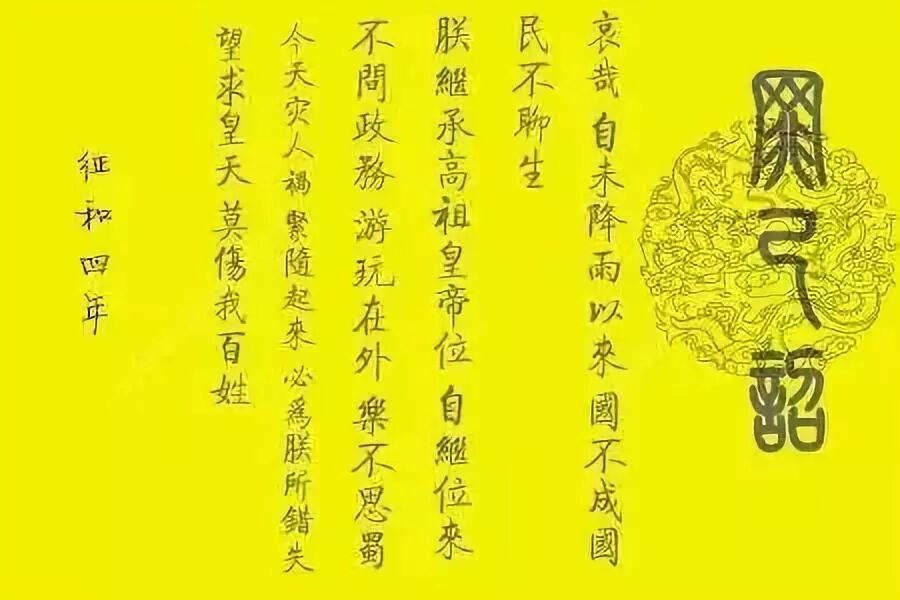 罪己詔
哀哉 自未降雨以來 國不成國
民不聊生
朕繼承高祖皇帝位 自繼位來
不問政務 游玩在外 樂不思蜀
今天灾人禍 緊隨起來 必爲朕所錯失
望求皇天 莫傷我百姓
征和四年